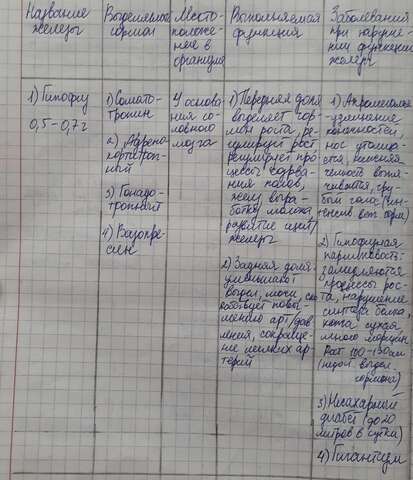 Название
железы
Выделяемый
гормон
Место-
положе-
ние в
организме
Выполняемая
функция
Заболевания
при наруше-
нии функции
железы
1) Гипофиз
0,5-0,7 г
1) Сомато-
тропин
2) Адрено-
кортикотроп-
ный
3) Гонадо-
тропный
4) Вазопре-
ссин
У основа-
ния го-
ловного
мозга
1) Передняя доля
выделяет гор-
мон роста, ре-
гулирует рост
регулирует про-
цессы созрева-
ния полов,
желез выра-
ботку молока,
развитие щит.
железы
2) Задняя доля
уменьшает
выдел. мочи, спо-
собствует повы-
шению арт/дав
ления, сокраще-
ние мелких ар-
терий
1) Акромегалия
удлинение
конечностей,
нос утолща-
ется, нижняя
челюсть вытя-
гивается, гру-
бый голос
2) Гипофизная
карликовость:
замедляются
процессы рос-
та, нарушение
синтеза белка,
кожа сухая,
много морщин
Рост 100-130см
(недост выдел.
гормона)
3) Несахарный
диабет (до 20
литров в сутки)
4) Гигантизм